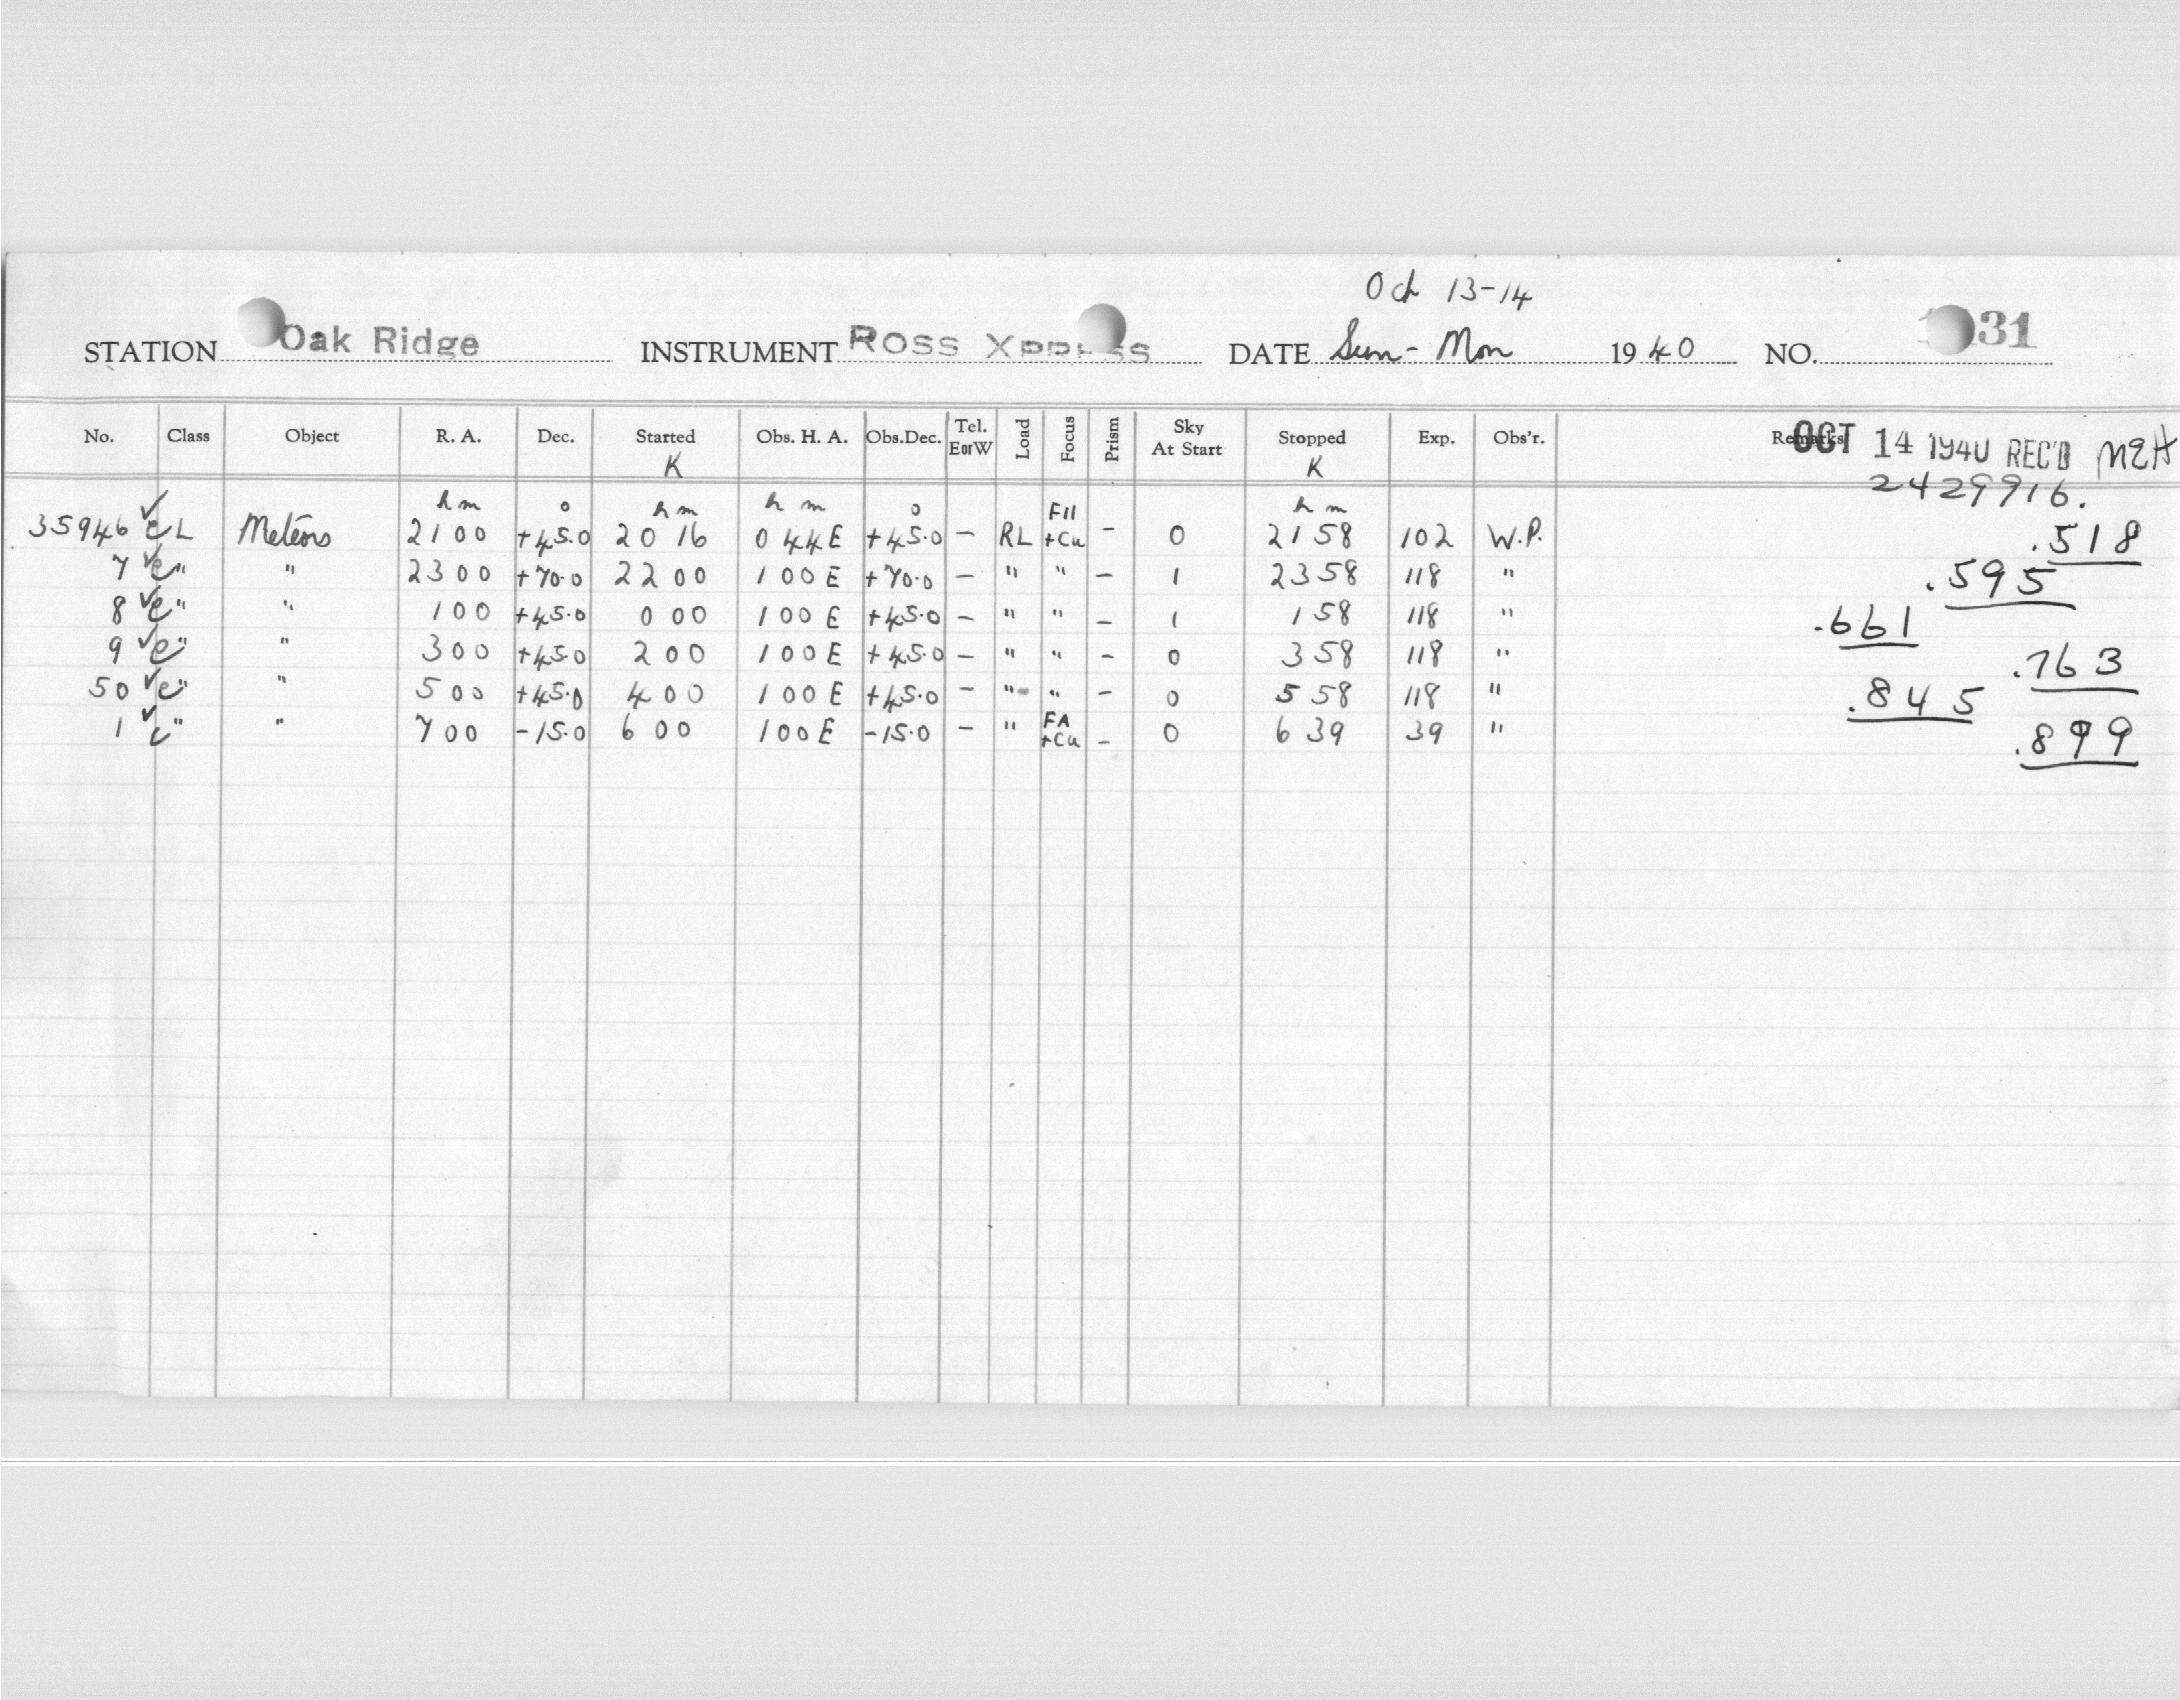 Oct 13-14
STATION Oak Ridge INSTRUMENT ROSS XPRESS DATE Sun - Mon 1940 NO. 31
No. Class Object R. A. Dec. Started Obs. H. A. Obs.Dec. Tel. EorW Load Focus Prism Sky At Start Stopped Exp. Obs'r. Remarks OCT 14 1940 REC'D MEH
K K
2429916.
h m o h m h m o h m
35946 ✓ e L Meteors 21 00 +45.0 20 16 0 44E +45.0 - RL F11 +Cu - 0 21 58 102 W.P. .518
7 ✓ e " " 23 00 +70.0 22 00 1 00 E +70.0 - " " - 1 23 58 118 " .595
8 ✓ e " " 1 00 +45.0 0 00 1 00 E +45.0 - " " - 1 1 58 118 " .661
9 ✓ e " " 3 00 +45.0 2 00 1 00 E +45.0 - " " - 0 3 58 118 " .763
50 ✓ e " " 5 00 +45.0 4 00 1 00 E +45.0 - " " - 0 5 58 118 " .845
1 ✓ e " " 7 00 -15.0 6 00 1 00 E -15.0 - " FA +Cu - 0 6 39 39 " .899